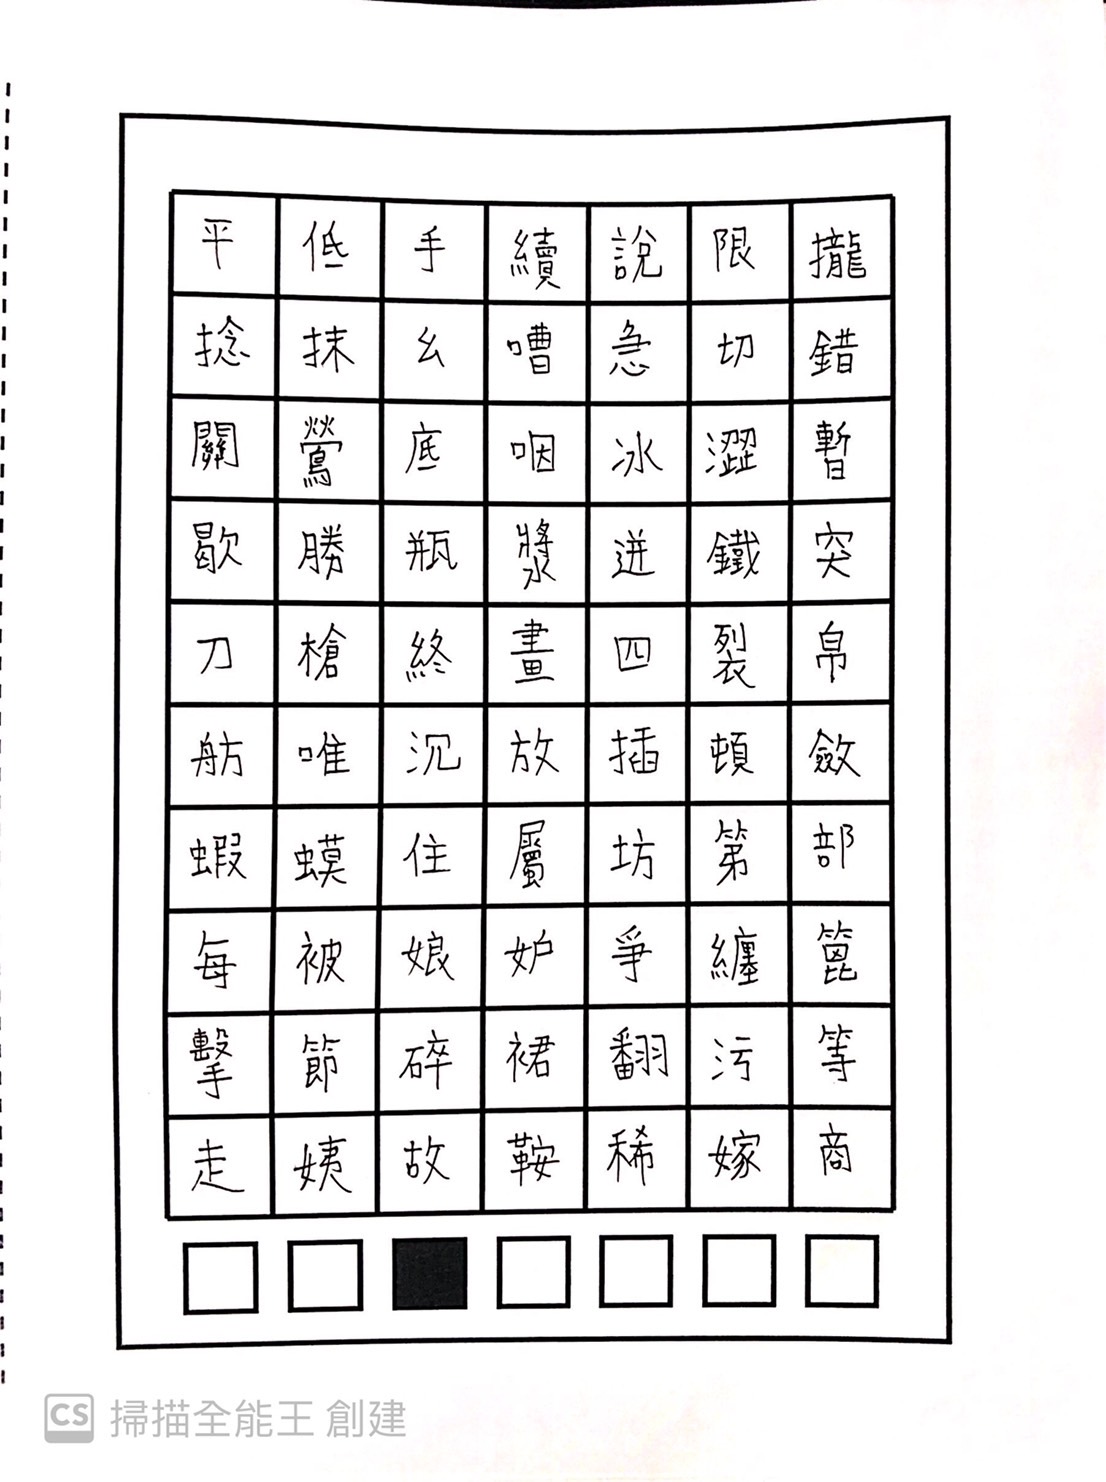 平 低 手 續 說 限 攏
捻 抹 幺 嘈 急 切 錯
關 鶯 底 咽 冰 澀 暫
歇 勝 瓶 漿 迸 鐵 突
刀 槍 終 畫 四 裂 帛
舫 唯 沉 放 插 頓 斂
蝦 蟆 住 屬 坊 第 部
每 被 娘 妒 爭 纏 篦
擊 節 碎 裙 翻 污 等
走 姨 故 鞍 稀 嫁 商
CS 掃描全能王 創建